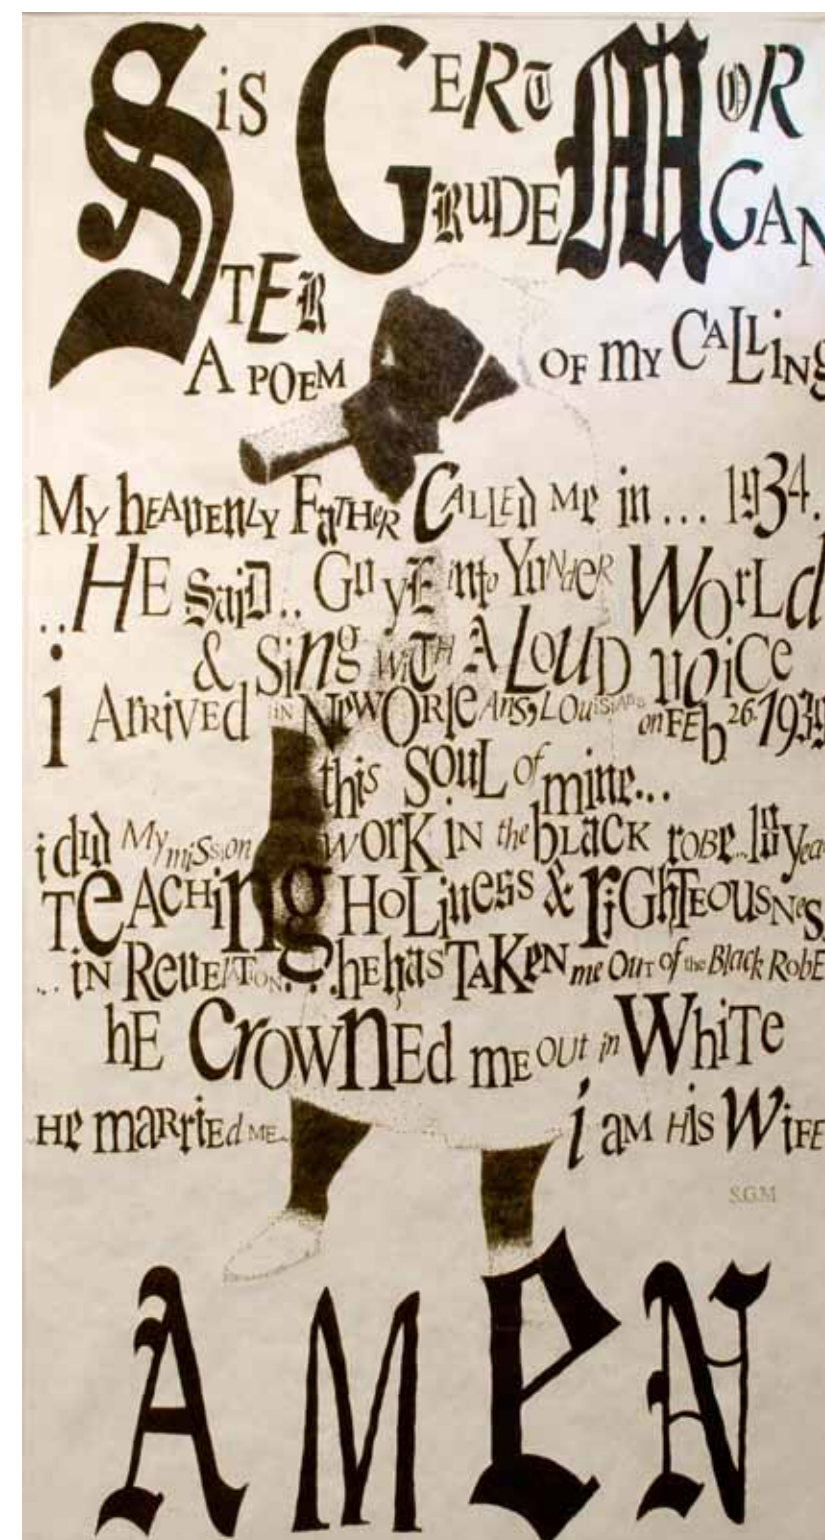 SisTER GERTRUDE MORGAN
A POEM OF my CALLiNg
My hEAvENLY FaTHeR CALLEd Me in... 1934.
..HE SaiD.. Go yE into YoNdeR WorLd
& Sing WiTH A LOUD voiCe
i ArRiVED IN NewORleAns, LOuiSiANA on FEb 26-1939
this SOUL of mine...
i did My mission WORK iN the bLaCK robe..
TeACHing HoLiness & riGhTEOUSNes
... iN ReveLATiON...hE has TaKeN me OuT of the Black RobE
hE CrOWNEd mE OUt in WhiTe
He maRriEd ME.. i aM His WiFE
S.G.M
AMEN